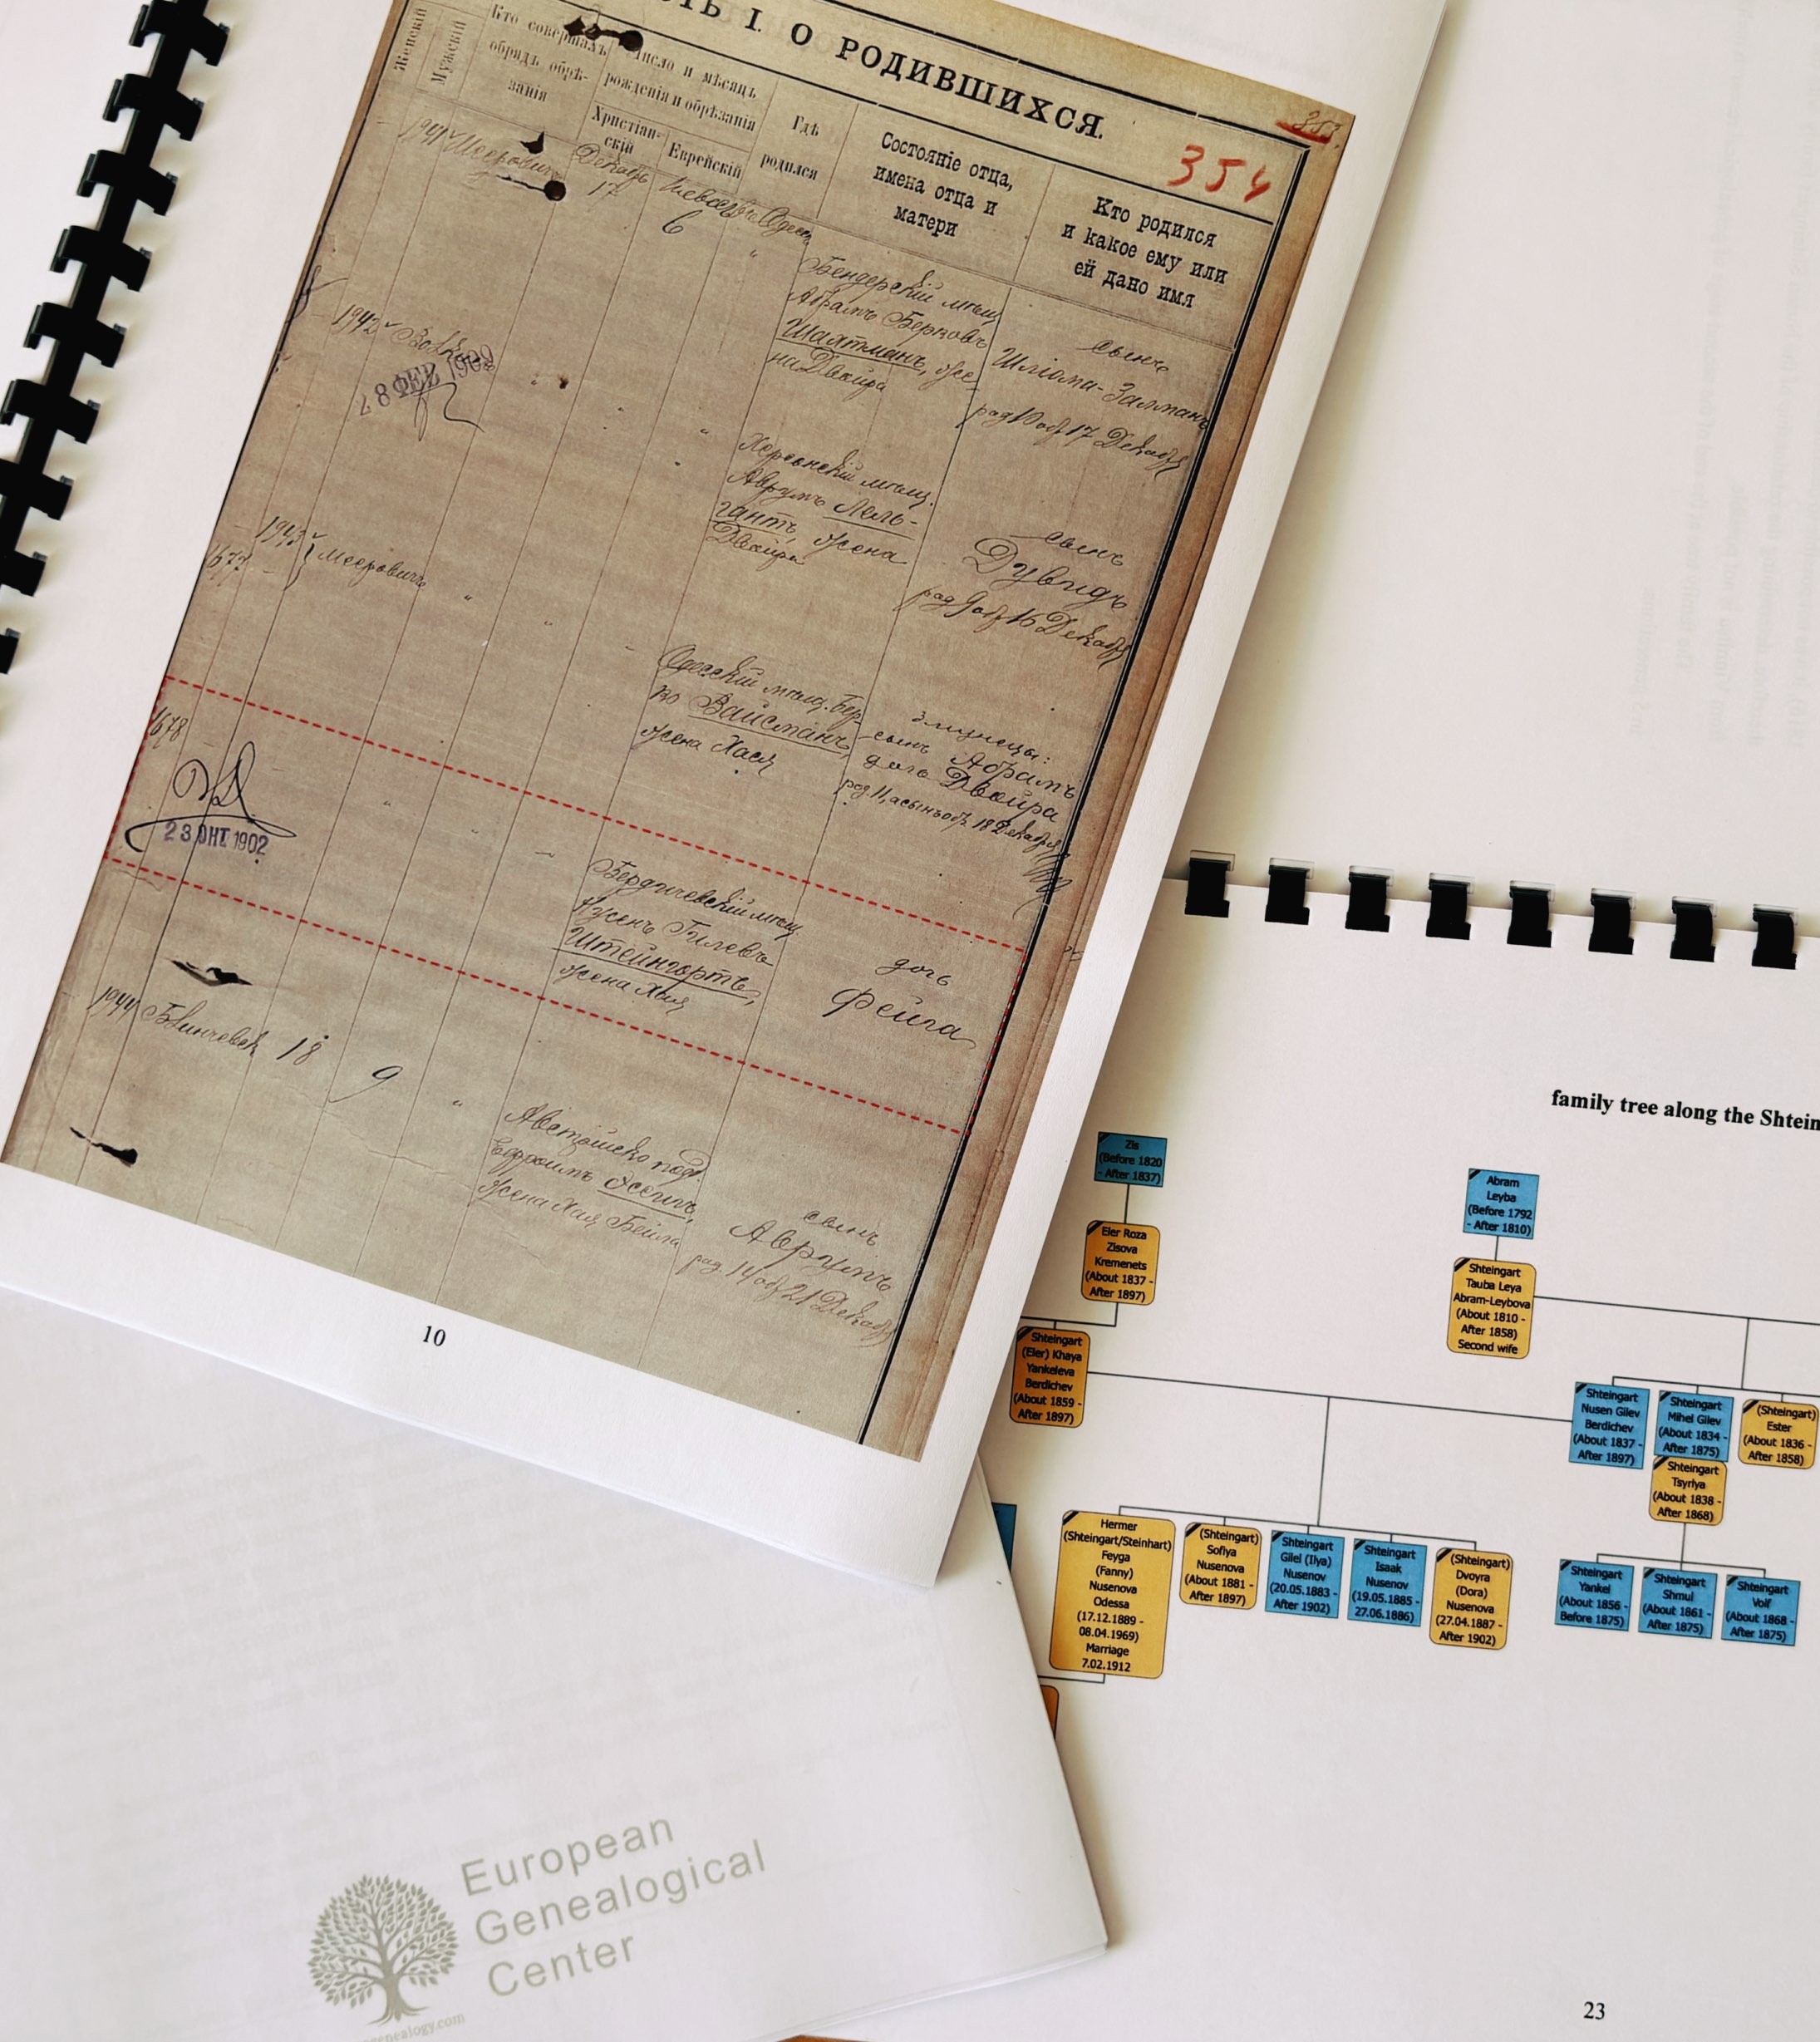 ТЬ I. О РОДИВШИХСЯ.
354
Женскій
Мужскій
Кто совершалъ
обрядъ обрѣ-
занія
Число и мѣсяцъ
рожденія и обрѣзанія
Христіан-
скій
Еврейскій
Гдѣ
родился
Состояніе отца,
имена отца и
матери
Кто родился
и какое ему или
ей дано имя
1941
Мееровичъ
Декабр
17
6
Бендерскій мѣщ
Абрамъ Берковъ
Шахтманъ, же
на Двойра
сынъ
Шліома-Залманъ
род 10 об 17 Декабр
1942
28 ФЕВ 1902
Херсонскій мѣщ.
Аврумъ Лель-
гантъ, жена
Двойра
сынъ
Дувидъ
род 9 об 16 Декабр
1943
1677
Мееровичъ
Одесскій мѣщ. Бер
ко Вайсманъ,
жена Хася
близнецы:
сынъ Абрамъ
дочь Двойра
род 11, а сынъ об 18 Декабр
1678
23 ОКТ 1902
Бердичевскій мѣщ
Нусенъ Гилевъ
Штейнгортъ,
жена Хая
дочь
Фейга
1944
18
9
Австрійско под.
Ефроимъ
жена Хая Бейла
сынъ
Аврумъ
род. 14 об 21 Декабр
10
family tree along the Shtein
Zis
(Before 1820
- After 1837)
Abram
Leyba
(Before 1792
- After 1810)
Eler Roza
Zisova
Kremenets
(About 1837 -
After 1897)
Shteingart
Tauba Leya
Abram-Leybova
(About 1810 -
After 1858)
Second wife
Shteingart
(Eler) Khaya
Yankeleva
Berdichev
(About 1859 -
After 1897)
Shteingart
Nusen Gilev
Berdichev
(About 1837 -
After 1897)
Shteingart
Mihel Gilev
(About 1834 -
After 1875)
(Shteingart)
Ester
(About 1836 -
After 1858)
Shteingart
Tsyrlya
(About 1838 -
After 1868)
Hermer
(Shteingart/Steinhart)
Feyga
(Fanny)
Nusenova
Odessa
(17.12.1889 -
08.04.1969)
Marriage
7.02.1912
(Shteingart)
Sofiya
Nusenova
(About 1881 -
After 1897)
Shteingart
Gilel (Ilya)
Nusenov
(20.05.1883 -
After 1902)
Shteingart
Isaak
Nusenov
(19.05.1885 -
27.06.1886)
(Shteingart)
Dvoyra
(Dora)
Nusenova
(27.04.1887 -
After 1902)
Shteingart
Yankel
(About 1856 -
Before 1875)
Shteingart
Shmul
(About 1861 -
After 1875)
Shteingart
Volf
(About 1868 -
After 1875)
European
Genealogical
Center
genealogy.com
23